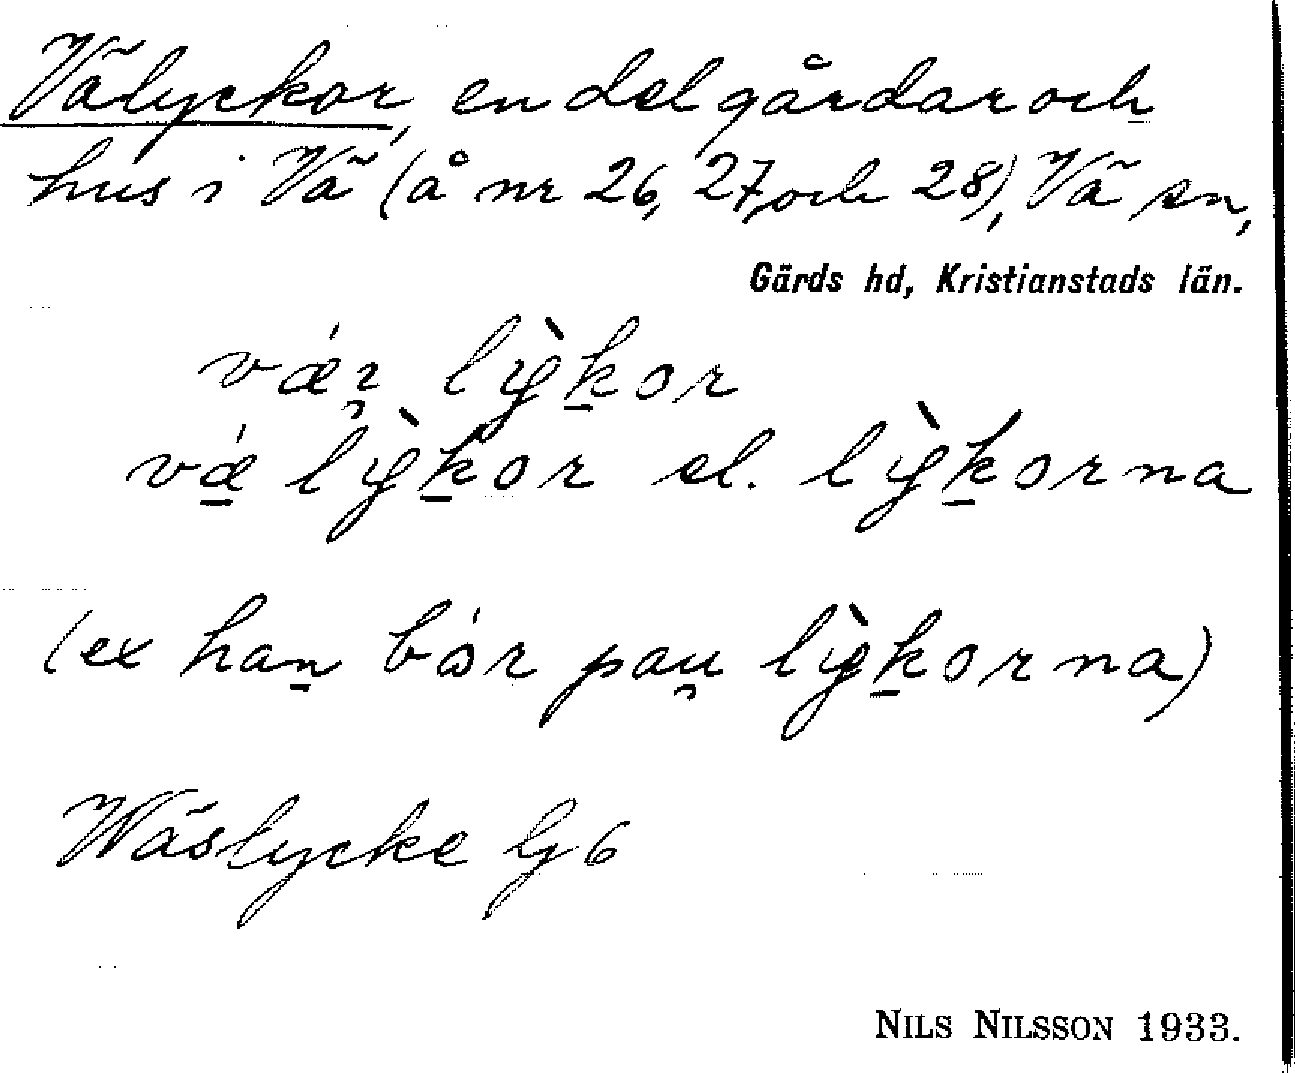 Välyckor, en del gårdar och
hus i Vä (å nr 26, 27, och 28), Vä sn,
Gärds hd, Kristianstads län.
vǽı̯ lỳḵor
vǽ̱ lỳḵor el. lỳḵorna
(ex haṉ bór pau̯ lỳḵorna)
Wäslycke Gj 6
NILS NILSSON 1933.